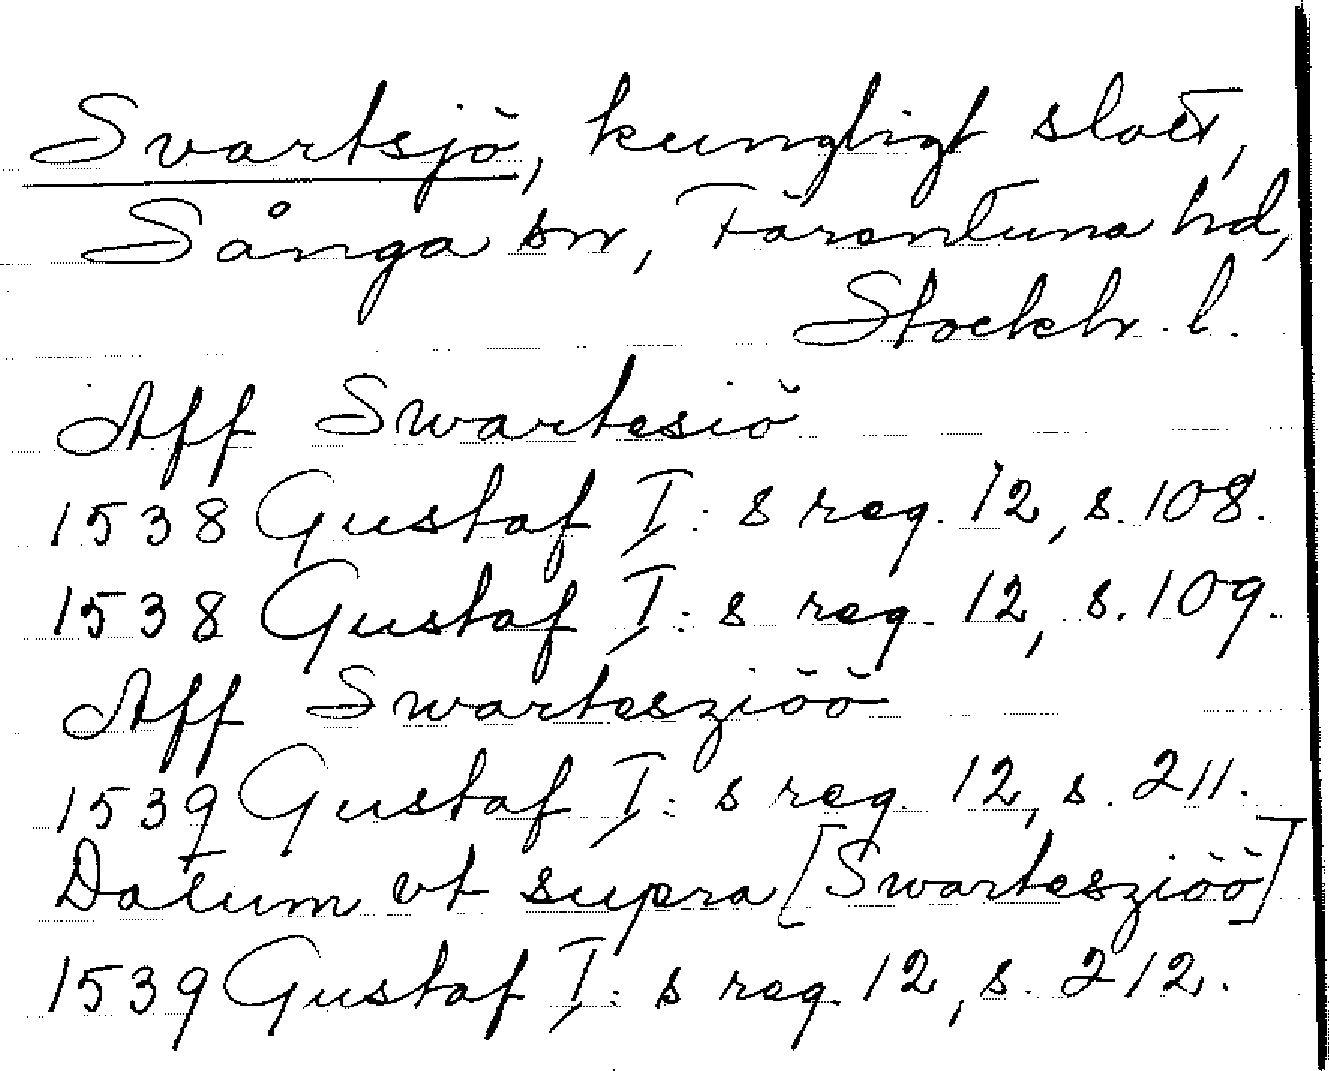 Svartsjö, kungligt slott,
Sånga sn, Färentuna hd,
Stockh. l.
Aff Swartesiö
1538 Gustaf I:s reg. 12, s. 108.
1538 Gustaf I:s reg. 12, s. 109.
Aff Swartesziöö
1539 Gustaf I:s reg. 12, s. 211.
Datum vt supra [Swartesziöö]
1539 Gustaf I:s reg. 12, s. 212.